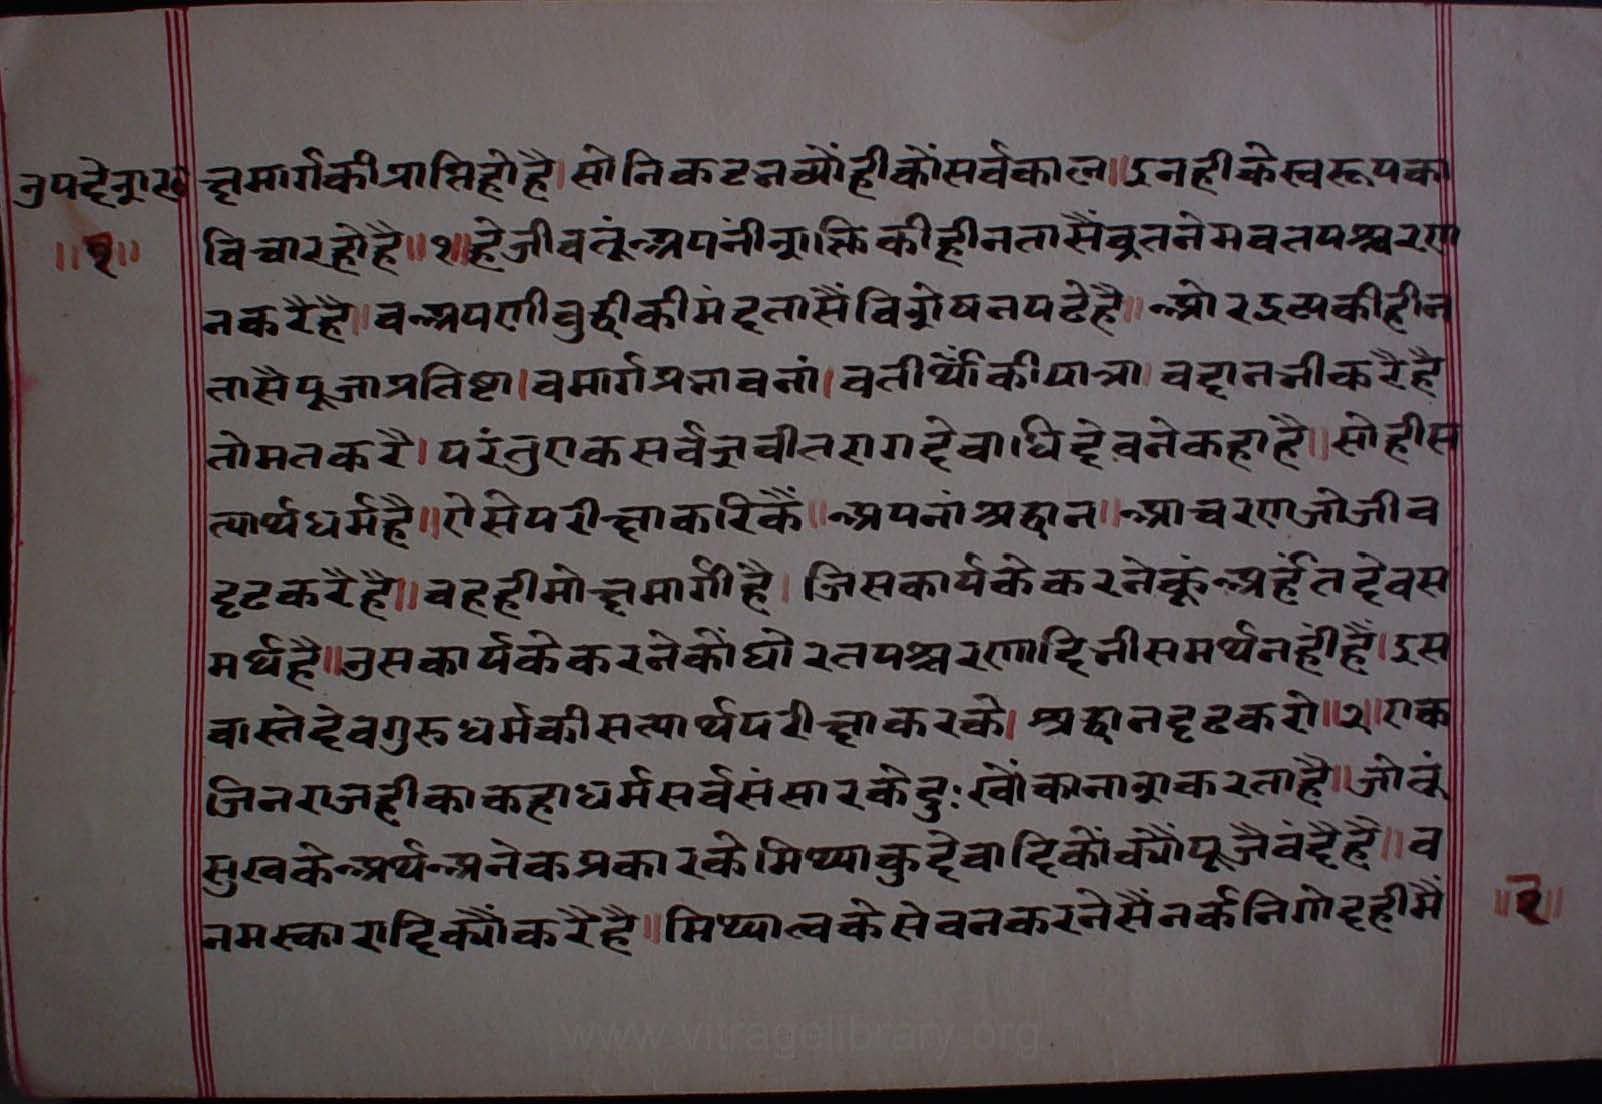 उपदेशरत्न
॥२॥
क्षमार्गकीप्राप्तिहोहै।सोनिकटभव्योंहीकोंसर्वकाल॥इनहीकेस्वरूपका
विचारहोहै॥१॥हेजीवतूंअपनीशक्तिकीहीनतासैंव्रतनेमवतपश्चरण
नकरैहै॥वअपणीबुद्धीकीमंदतासैंविशेषनपढेहै॥ओरद्रव्यकीहीन
तासैपूजाप्रतिष्टा।वमार्गप्रभावनां।वतीर्थोंकीयात्रा।वदानभीकरैहै
तोमतकरै।परंतुएकसर्वज्ञवीतरागदेवाधिदेवनेकहाहै॥सोहीस
त्यार्थधर्महै॥ऐसेपरीक्षाकरिकैं॥अपनांश्रद्धान॥आचरणजोजीव
दृढकरैहै॥वहहीमोक्षमार्गीहै।जिसकार्यकेकरनेकूंअर्हंतदेवस
मर्थहै॥उसकार्यकेकरनेकोंघोरतपश्चरणादिभीसमर्थनहींहैं।इस
वास्तेदेवगुरुधर्मकीसत्यार्थपरीक्षाकरके।श्रद्धानदृढकरो॥२॥एक
जिनराजहीकाकहाधर्मसर्वसंसारकेदुःखोंकानाशकरताहै॥जोतूं
सुखकेअर्थअनेकप्रकारकेमिथ्याकुदेवादिकोंक्योंपूजैवंदैहै॥व
नमस्कारादिक्योंकरैहै॥मिथ्यात्वकेसेवनकरनेसैंनर्कनिगोदहीमैं
॥२॥
www.vitragelibrary.org